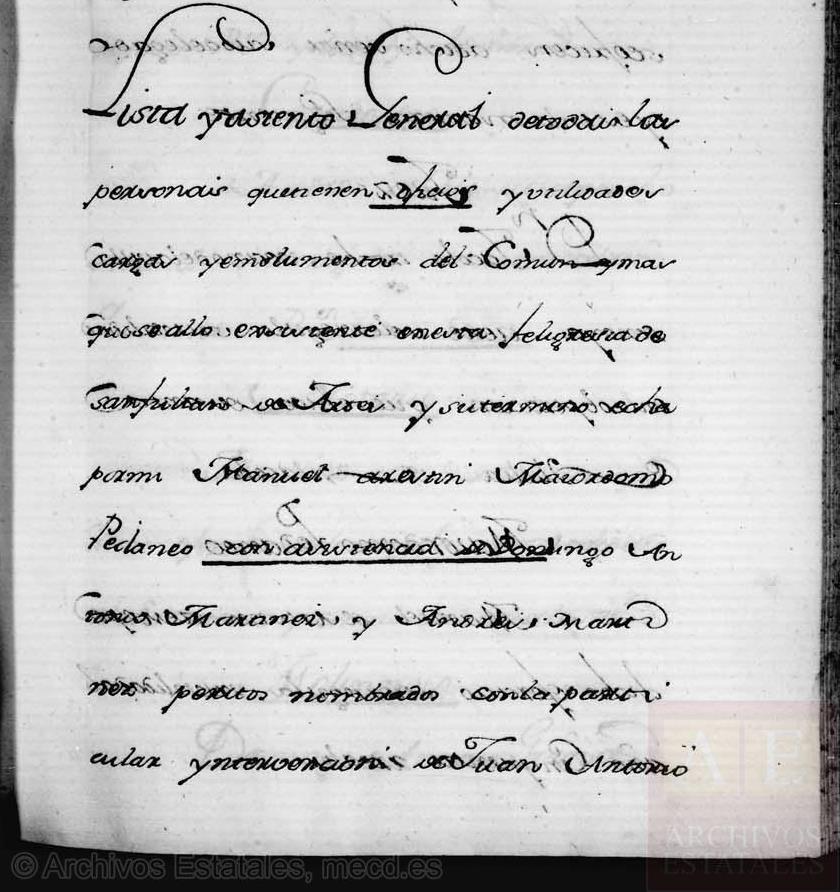 Lista y asiento General de todas las
personais que tienen ofiçios y utilidades
cargas y emolumentos del Comun y mas
que se allo exsistente en esta feligresia de
San Julian de Arei y su termino echa
por mi Manuel Maiordomo
Pedaneo con asistencia de Domingo An
tonio Martinez y Andres Marti
nez peritos nombrados con la parti
cular yntervencion de Juan Antonio
© Archivos Estatales, mecd.es
AE
ARCHIVOS
ESTATALES